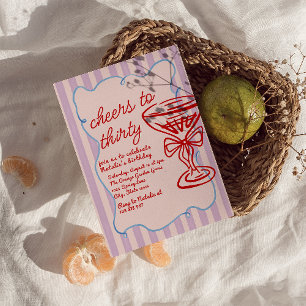 cheers to
thirty
join us to celebrate
Natalie's birthday
Saturday, August
The Orange Garden
City, State
Rsvp to Natalie at